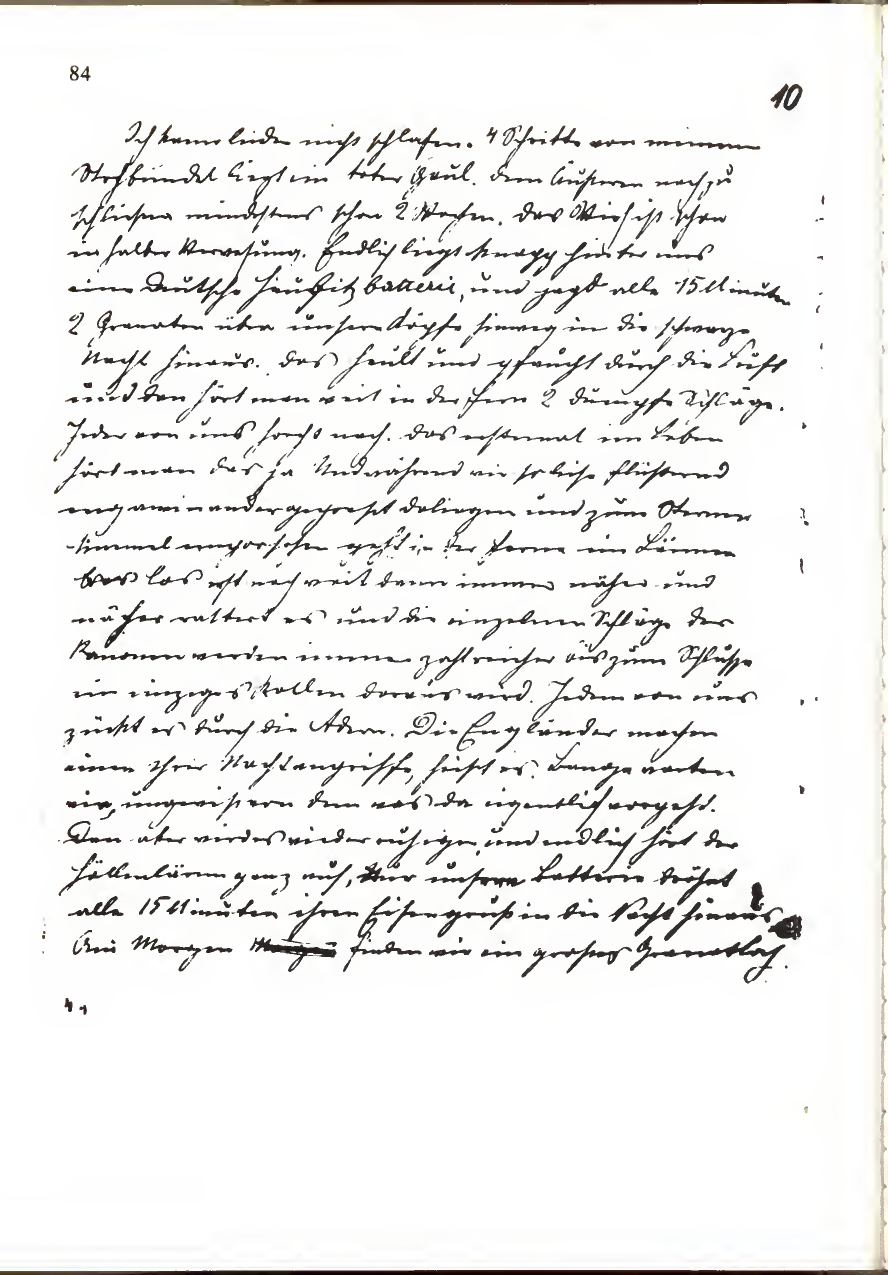 84
10
Ich kann leider nicht schlafen. 4 Schritte von meinem
Strohbündel liegt ein toter Gaul. Dem Äußeren nach zu
schließen mindestens schon 2 Wochen. Das Vieh ist schon
in halber Verwesung. Endlich liegt knapp hinter uns
eine Deutsche Haubitzbatterie, und jagt alle 15 Minuten
2 Granaten über unsere Köpfe hinweg in die schwarze
Nacht hinaus. Das heult und pfaucht durch die Luft
und dan hört man weit in der Fern 2 dumpfe Schläge.
Jeder von uns horcht nach. Das erstemal im Leben
hört man das ja Und während wir so leise flüsternd
eng aneinander gepreßt daliegen und zum Sternen
himmel emporsehen geht in der Ferne ein Lärmen
los erst noch weit dann immer näher und
näher rattert es und die einzelnen Schläge der
Kanonen werden immer zahlreicher bis zum Schlusse
ein einziges Rollen daraus wird. Jedem von uns
zückt es durch die Adern. Die Engländer machen
einen ihrer Nachtangriffe, heißt es. Bange warten
wir, ungewiß von dem was da eigentlich vorgeht.
Dan aber wird es wieder ruhiger und endlich hört der
Höllenlärm ganz auf, Nur unsere Batterie dröhnt
alle 15 Minuten ihren Eisengruß in die Nacht hinaus
Am Morgen finden wir ein großes Granatloch.